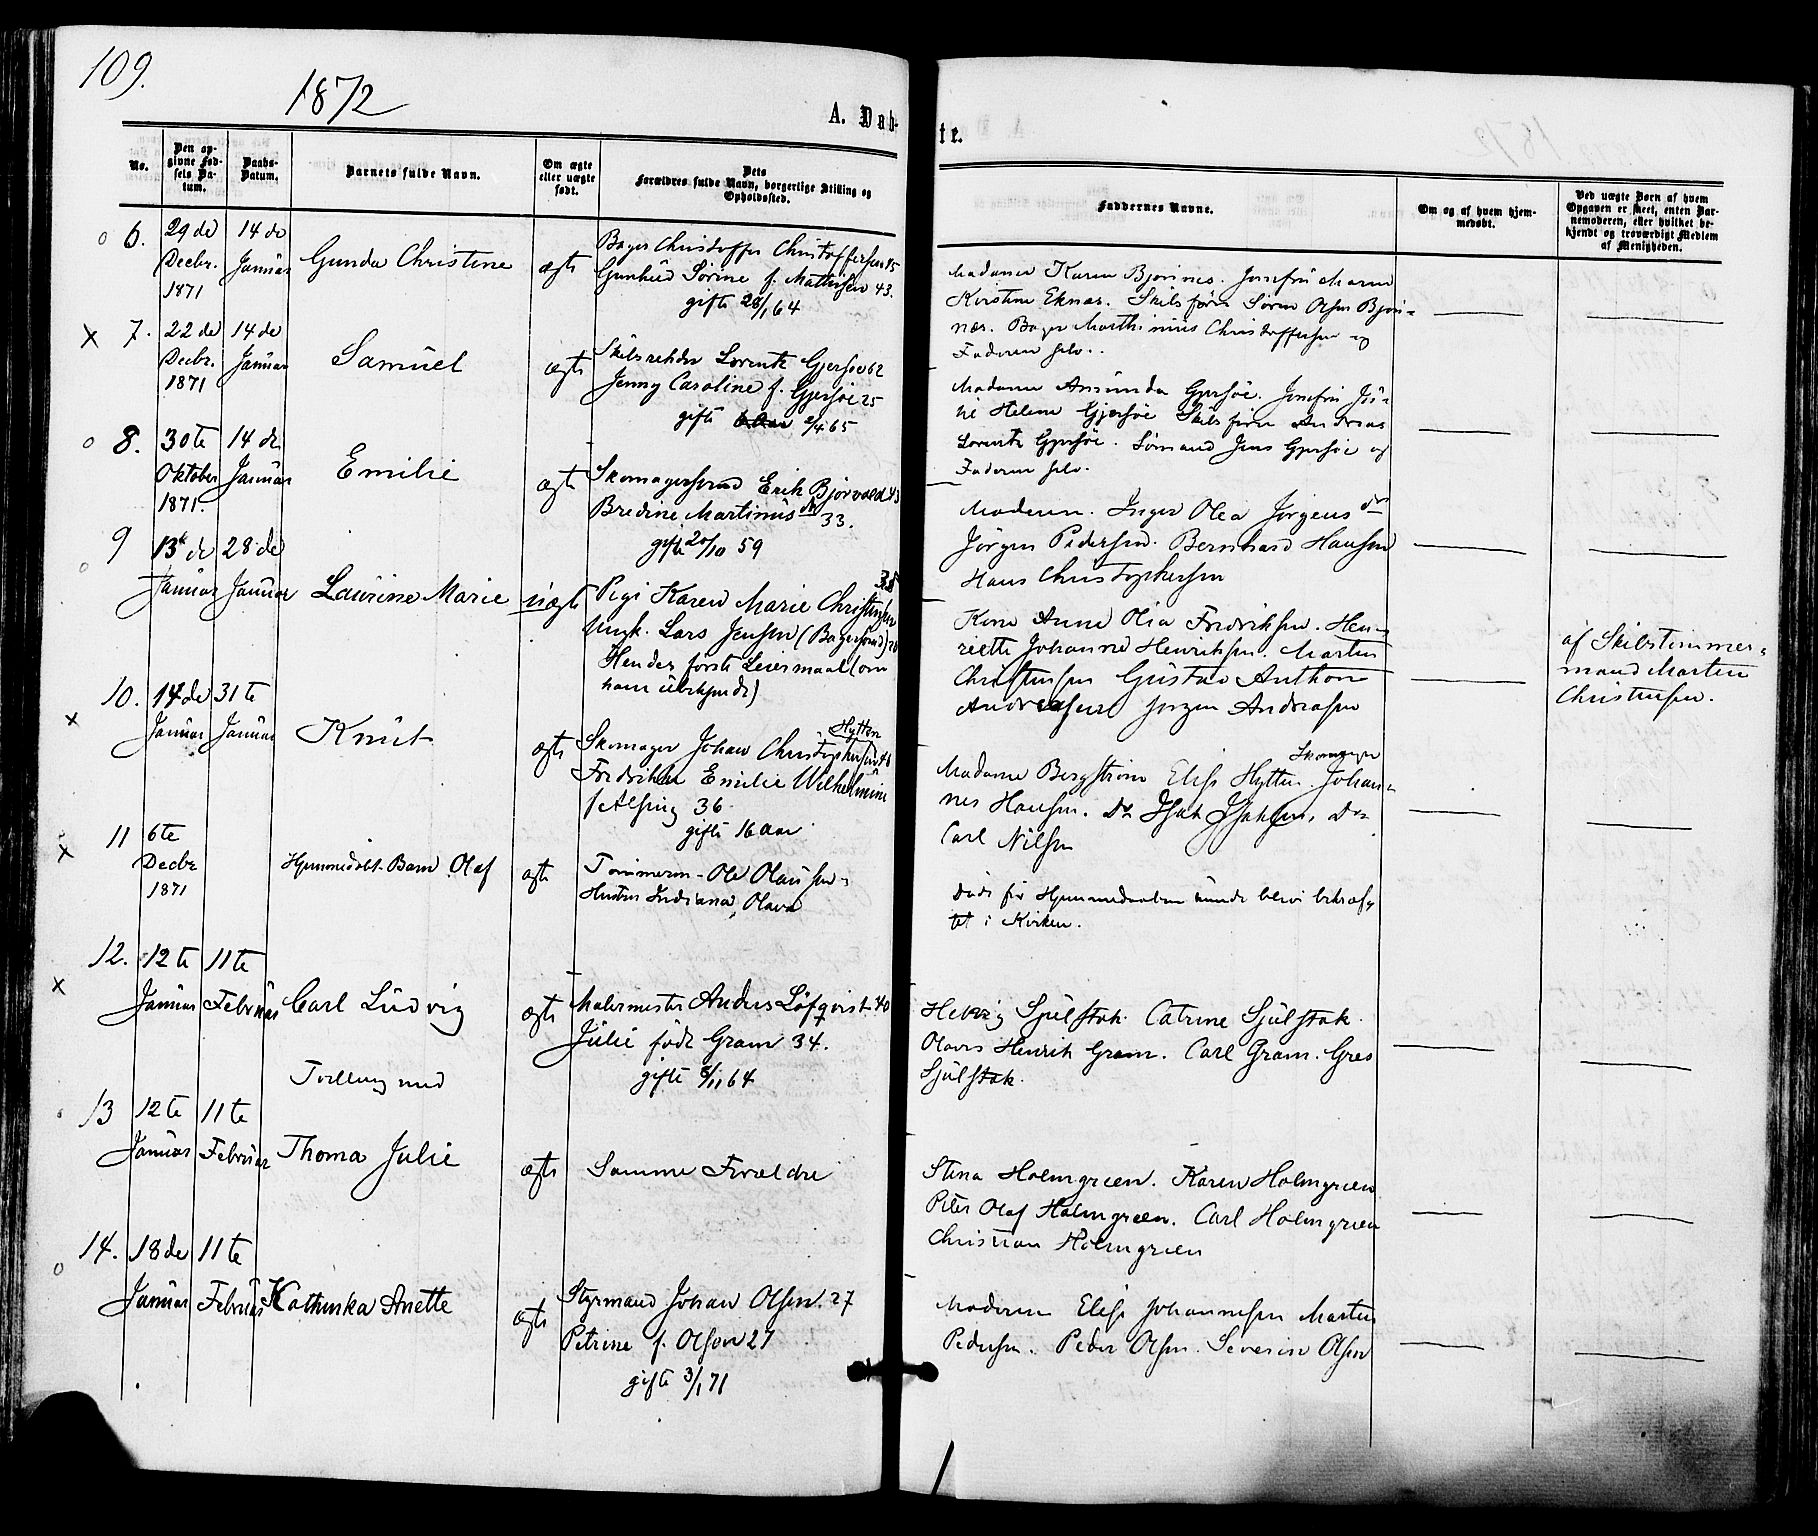 109.
1872
A. Døb-
te.
No.
Den op-
givne Fød-
sels Da-
tum.
Daabs-
Datum.
Barnets fulde Navn.
Om ægte
eller uægte
født.
Dets
Forældres fulde Navn, borgerlige Stilling og
Opholdssted.
Faddernes Navne.
Om og af hvem hjem-
medøbt.
Ved uægte Børn af hvem
Opgaven er skeet, enten Bar-
nemoderen, eller hvilket be-
kjendt og troværdigt Medlem
af Menigheden.
6.
29de
Decbr.
1871
14de
Januar
Gunda Christine
ægte
Bager Christoffer Christoffersen 45
Gunhild Sørine f. Mathisen 43.
gifte 28/1 64
Madame Karen Bjørnnes. Jomfru Maren
Kirstine Eknæs. Skibsfører Søren Olsen Bjørn-
næs. Bager Marthinius Christoffersen og
Faderen selv.
x 7.
22de
Decbr.
1871
14de
Januar
Samuel
ægte
Skibsrheder Lorentz Gjersøe 62
Jenny Caroline f. Gjersøe 25
gifte 2/4 65
Madame Amunda Gjersøe. Jomfru Ju-
lie Helene Gjersøe Skibsfører Andreas
Lorentz Gjersøe. Sømand Jens Gjersøe og
Faderen selv.
8.
30te
Oktober
1871.
14de
Januar
Emilie
ægte
Skomagersvend Erik Bjørvald 43
Bredine Martinusdr 33.
gifte 20/10 59
Moderen. Inger Olea Jørgensdr
Jørgen Pedersen. Bernhard Hansen
Hans Christophersen
9
13de
Januar
28de
Januar
Laurine Marie
uægte
Pige Karen Marie Christensen 35
Ungk. Lars Jensen (Bagersvend) 28
Hendes første Leiermaal (om
ham ubekjendt)
Kone Anne Olea Fredriksen. Hen-
riette Johanne Henriksen. Marten
Christensen Gustav Anthon
Andreasen Jørgen Andreasen
af Skibstømmer-
mand Marten
Christensen.
x 10.
14de
Januar
31te
Januar
Knut
ægte
Skomager Johan Christophersen Hytten 46
Fredrikke Emilie Wilhelmine
f. Alfsing 36
gifte 16 Aar
Madame Bergstrøm Elise Hytten. Skomager Johan-
nes Hansen. Do Isak Isaksen, Do
Carl Nilsen
x 11
6te
Decbr
1871
Hjemmedøbt Barn Olaf
ægte
Tømmerm. Ole Olaussen,
Hustru Indiana, Olava
Døde før Hjemmedaaben kunde blive bekræf-
tet i Kirken.
x 12.
12te
Januar
11te
Februar
Carl Ludvig
ægte
Malermester Anders Löfqvist 40
Julie født Gram 34.
gifte 8/11 64
Hedvig Sjulstok. Catrine Sjulstok.
Olavus Henrik Gram. Carl Gram. Gres
Sjulstok.
Tvilling med
13
12te
Januar
11te
Februar
Thoma Julie
ægte
Samme Forældre
Stina Holmgreen. Karen Holmgreen
Peter Olaf Holmgreen. Carl Holmgreen
Christian Holmgreen
14.
18de
Januar
11te
Februar
Kathinka Anette
ægte
Styrmand Johan Olsen. 27
Petrine f. Olsen 27
gifte 3/1 71
Moderen Elise Johannesen Marten
Pedersen. Peder Olsen. Severin Olsen